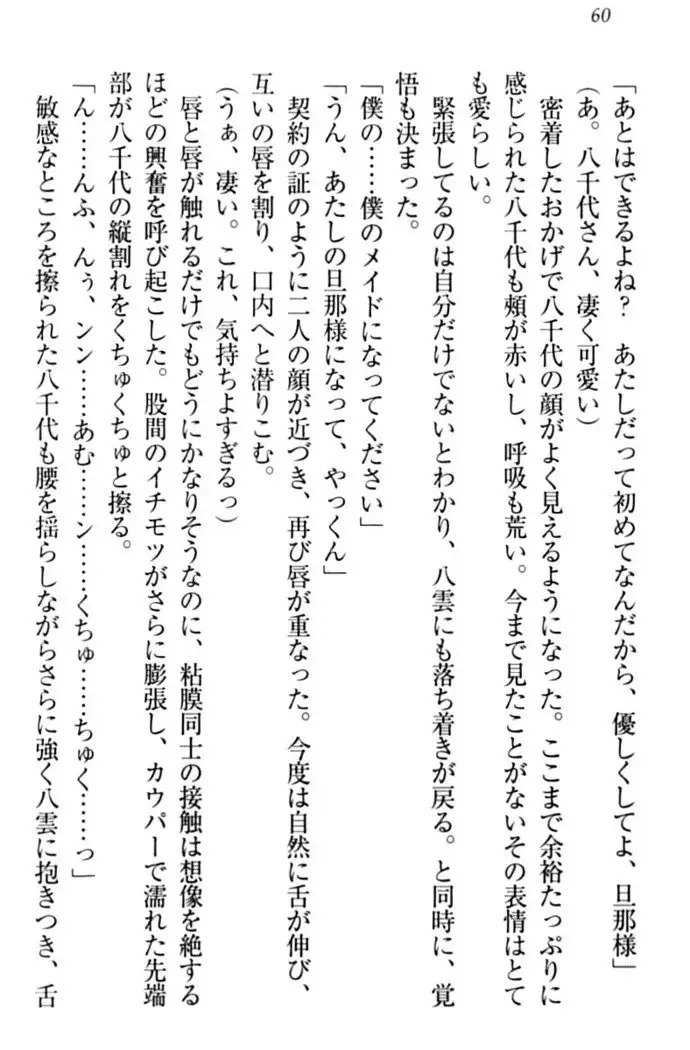 60
「あとはできるよね?　あたしだって初めてなんだから、優しくしてよ、旦那様」
(あ。八千代さん、凄く可愛い)
密着したおかげで八千代の顔がよく見えるようになった。ここまで余裕たっぷりに
感じられた八千代も頰が赤いし、呼吸も荒い。今まで見たことがないその表情はとて
も愛らしい。
緊張してるのは自分だけでないとわかり、八雲にも落ち着きが戻る。と同時に、覚
悟も決まった。
「僕の……僕のメイドになってください」
「うん、あたしの旦那様になって、やっくん」
契約の証のように二人の顔が近づき、再び唇が重なった。今度は自然に舌が伸び、
互いの唇を割り、口内へと潜りこむ。
(うぁ、凄い。これ、気持ちよすぎるっ)
唇と唇が触れるだけでもどうにかなりそうなのに、粘膜同士の接触は想像を絶する
ほどの興奮を呼び起こした。股間のイチモツがさらに膨張し、カウパーで濡れた先端
部が八千代の縦割れをくちゅくちゅと擦る。
「ん……んふ、んぅ、ンン……あむ……ン……くちゅ……ちゅく……っ」
敏感なところを擦られた八千代も腰を揺らしながらさらに強く八雲に抱きつき、舌